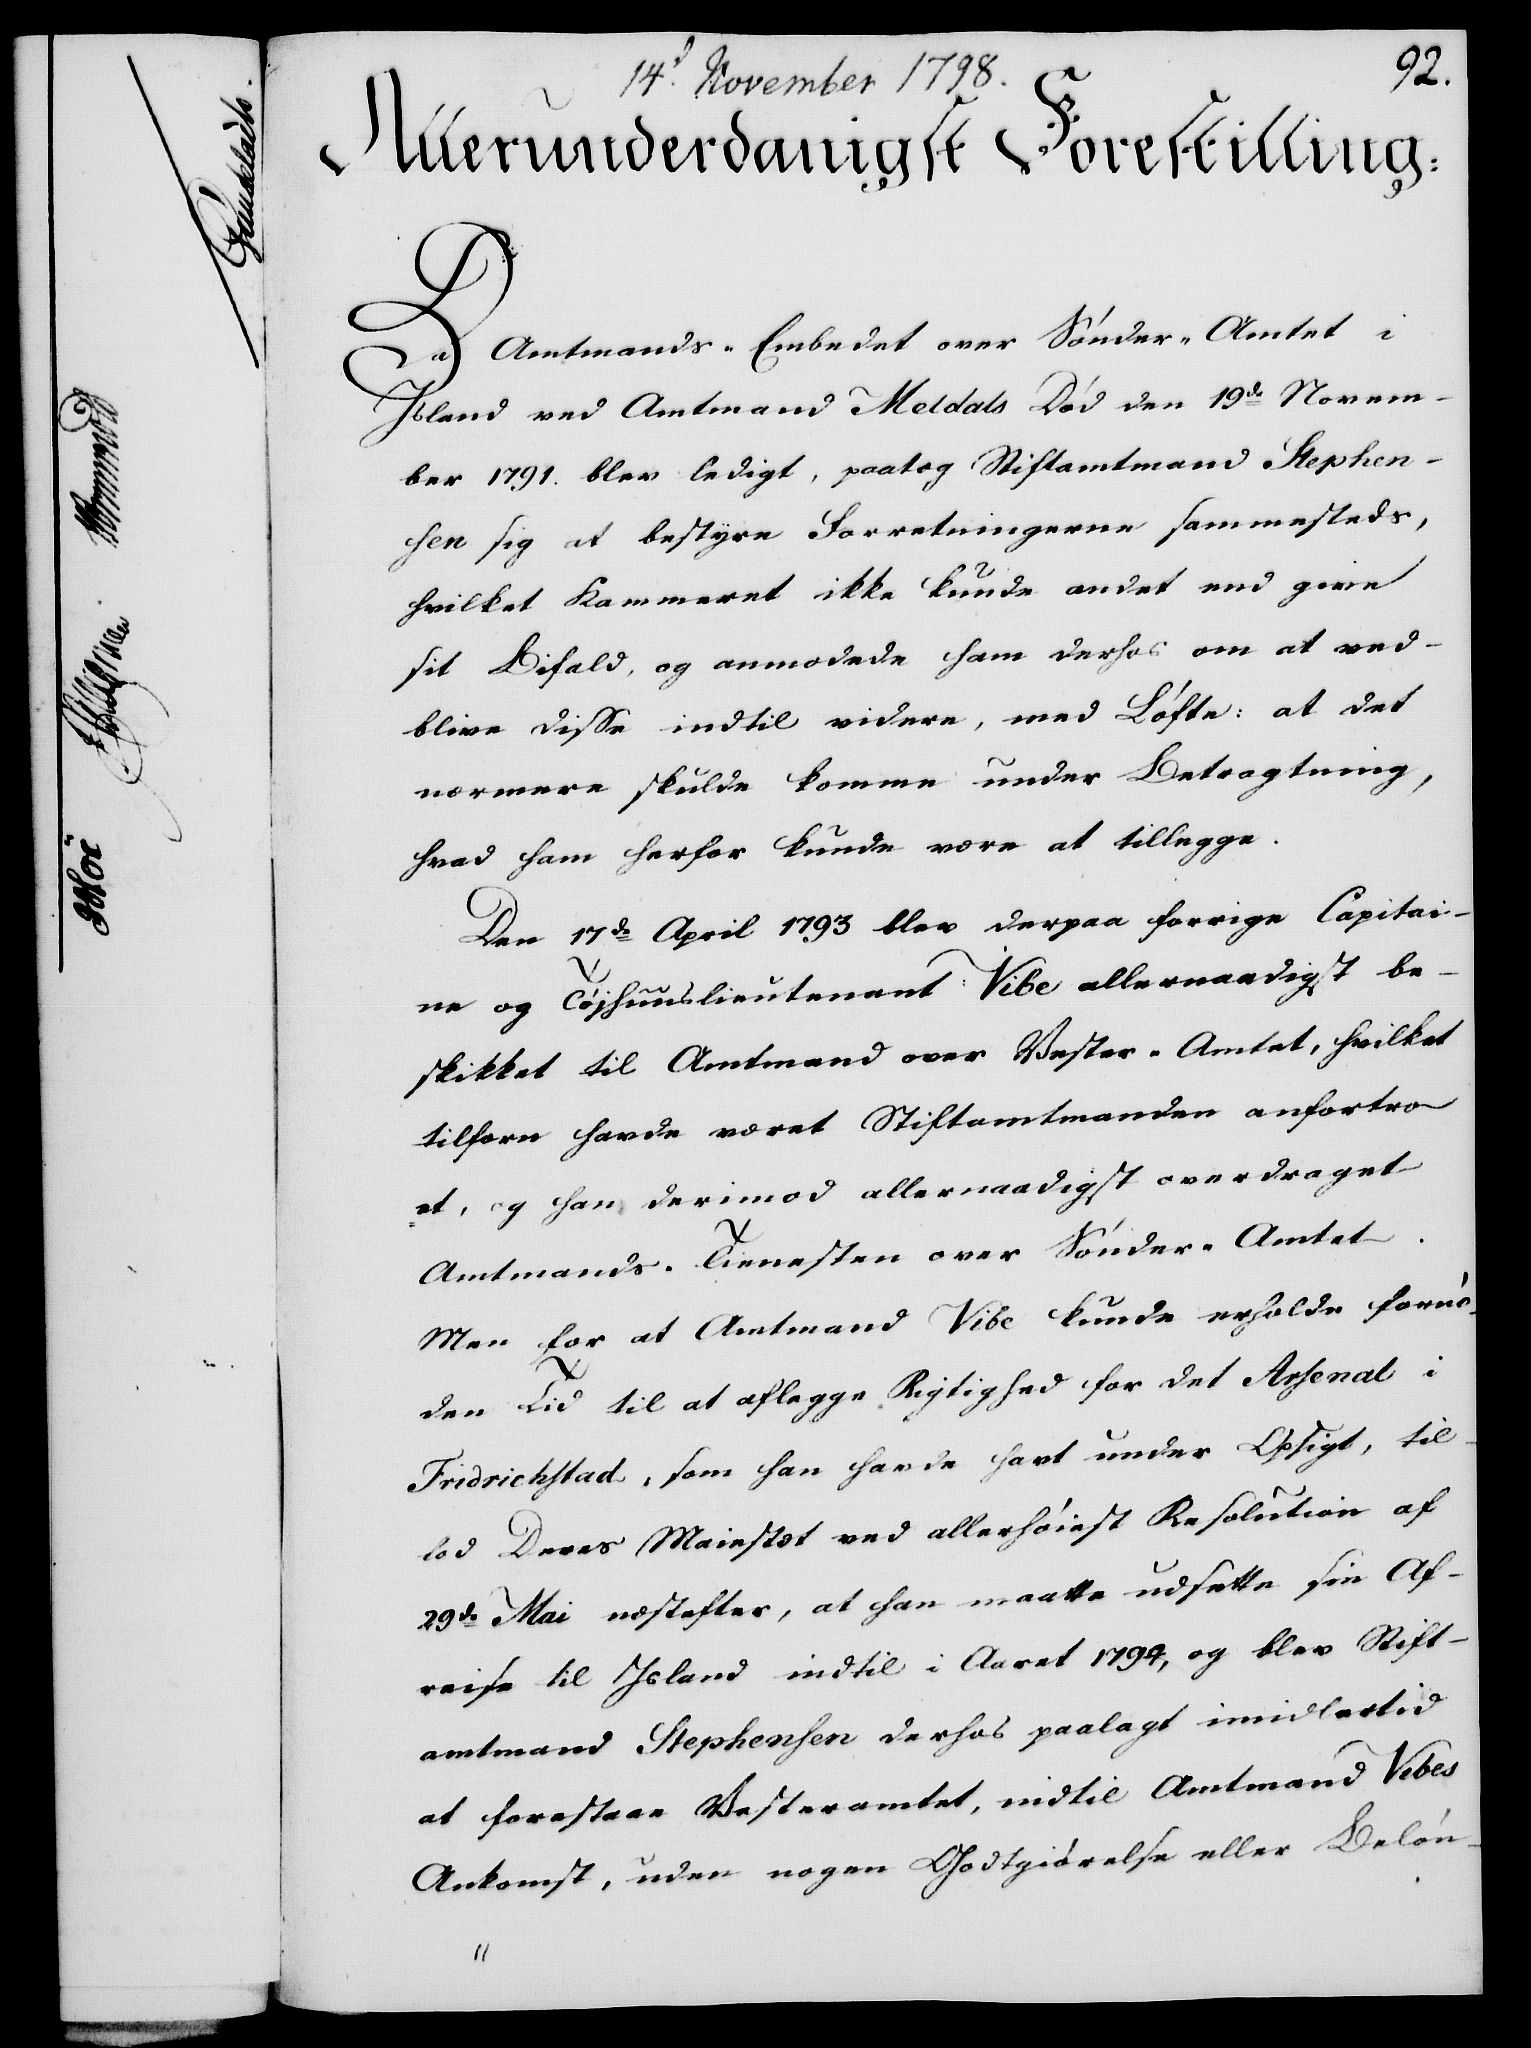 14d. November 1798.
92.
Allerunderdanigst Forestilling:
Da Amtmands-Embedet over Sønder-Amtet i
Jsland ved Amtmand Meldals Død den 19de Novem-
ber 1791. blev ledigt, paatog Stiftamtmand Stephen-
sen sig at bestyre Forretningerne sammesteds,
hvilket Kammeret ikke kunde andet end give
sit Bifald, og anmodede ham derhos om at ved-
blive disse indtil videre, med Løfte: at det
nærmere skulde komme under Betragtning,
hvad ham herfor kunde være at tillegge.
Den 17de April 1793 blev derpaa forrige Capitai-
ne og Tøjhuuslieutenant Vibe allernaadigst be-
skikket til Amtmand over Vester-Amtet, hvilket
tilforn havde været Stiftamtmanden anfortro-
et, og ham derimod allernaadigst overdraget
Amtmands-Tienesten over Sønder-Amtet.
Men for at Amtmand Vibe kunde erholde fornø-
den Tid til at aflegge Rigtighed for det Arsenal i
Fridrichstad, som han havde havt under Opsigt, til-
lod Deres Maiestæt ved allerhøiest Resolution af
29de Mai næstefter, at han maatte udsette sin Af-
reise til Jsland indtil i Aaret 1794, og blev Stift-
amtmand Stephensen derhos paalagt imidlertid
at forestaae Vesteramtet, indtil Amtmand Vibes
Ankomst, uden nogen Godtgiørelse eller Beløn-